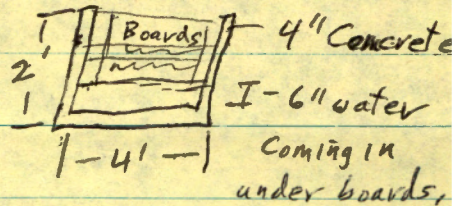 Boards
4" Concrete
2'
6" water
4'
Coming in
under boards,